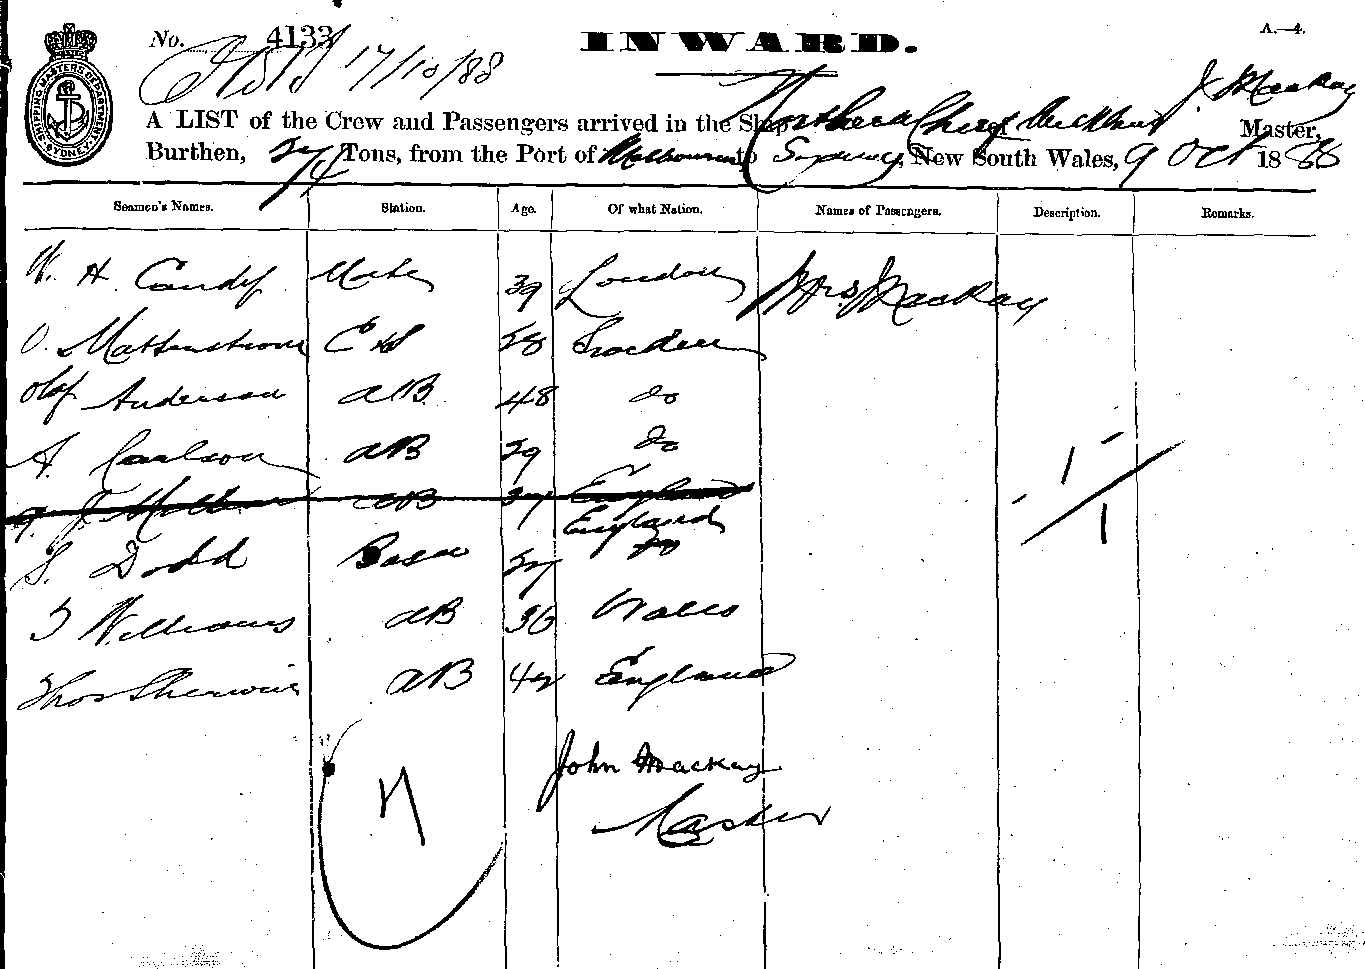 No. 4133 INWARD. A.—4.
17/10/88
A LIST of the Crew and Passengers arrived in the Ship of Auckland J. Mackay Master,
Burthen, Tons, from the Port of Melbourne to Sydney, New South Wales, 9 Oct 1888
SHIPPING MASTERS DEPARTMENT SYDNEY
Seamen's Names. Station. Age. Of what Nation. Names of Passengers. Description. Remarks.
W. H. Candy Mate 39 London Mrs Mackay
O. 28 Sweden
Olof Anderson AB 48 do
A. Carlson AB 29 do
J. AB 27 England
England
S. Dodd Bosn 27 do
T Williams AB 36 Wales
Thos Sherwin AB 42 England
John Mackay
Master
7